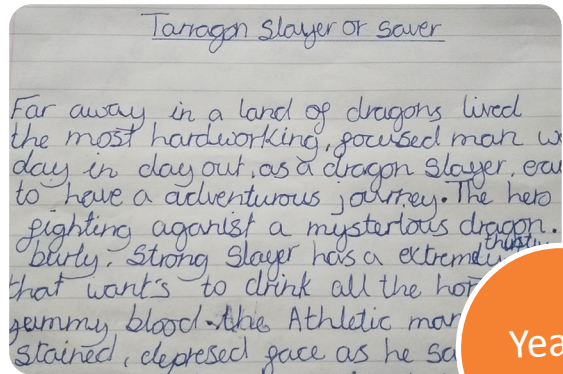 Tarragon Slayer or saver
Far away in a land of dragons lived
the most hardworking, focused man
day in day out, as a dragon slayer,
to have a adventurous journey. The hero
fighting aganist a mysterious dragon.
burly, Strong Slayer has a extremely thirsty
that want's to drink all the
yummy blood. the Athletic man
Stained, depresed face as he
Yea